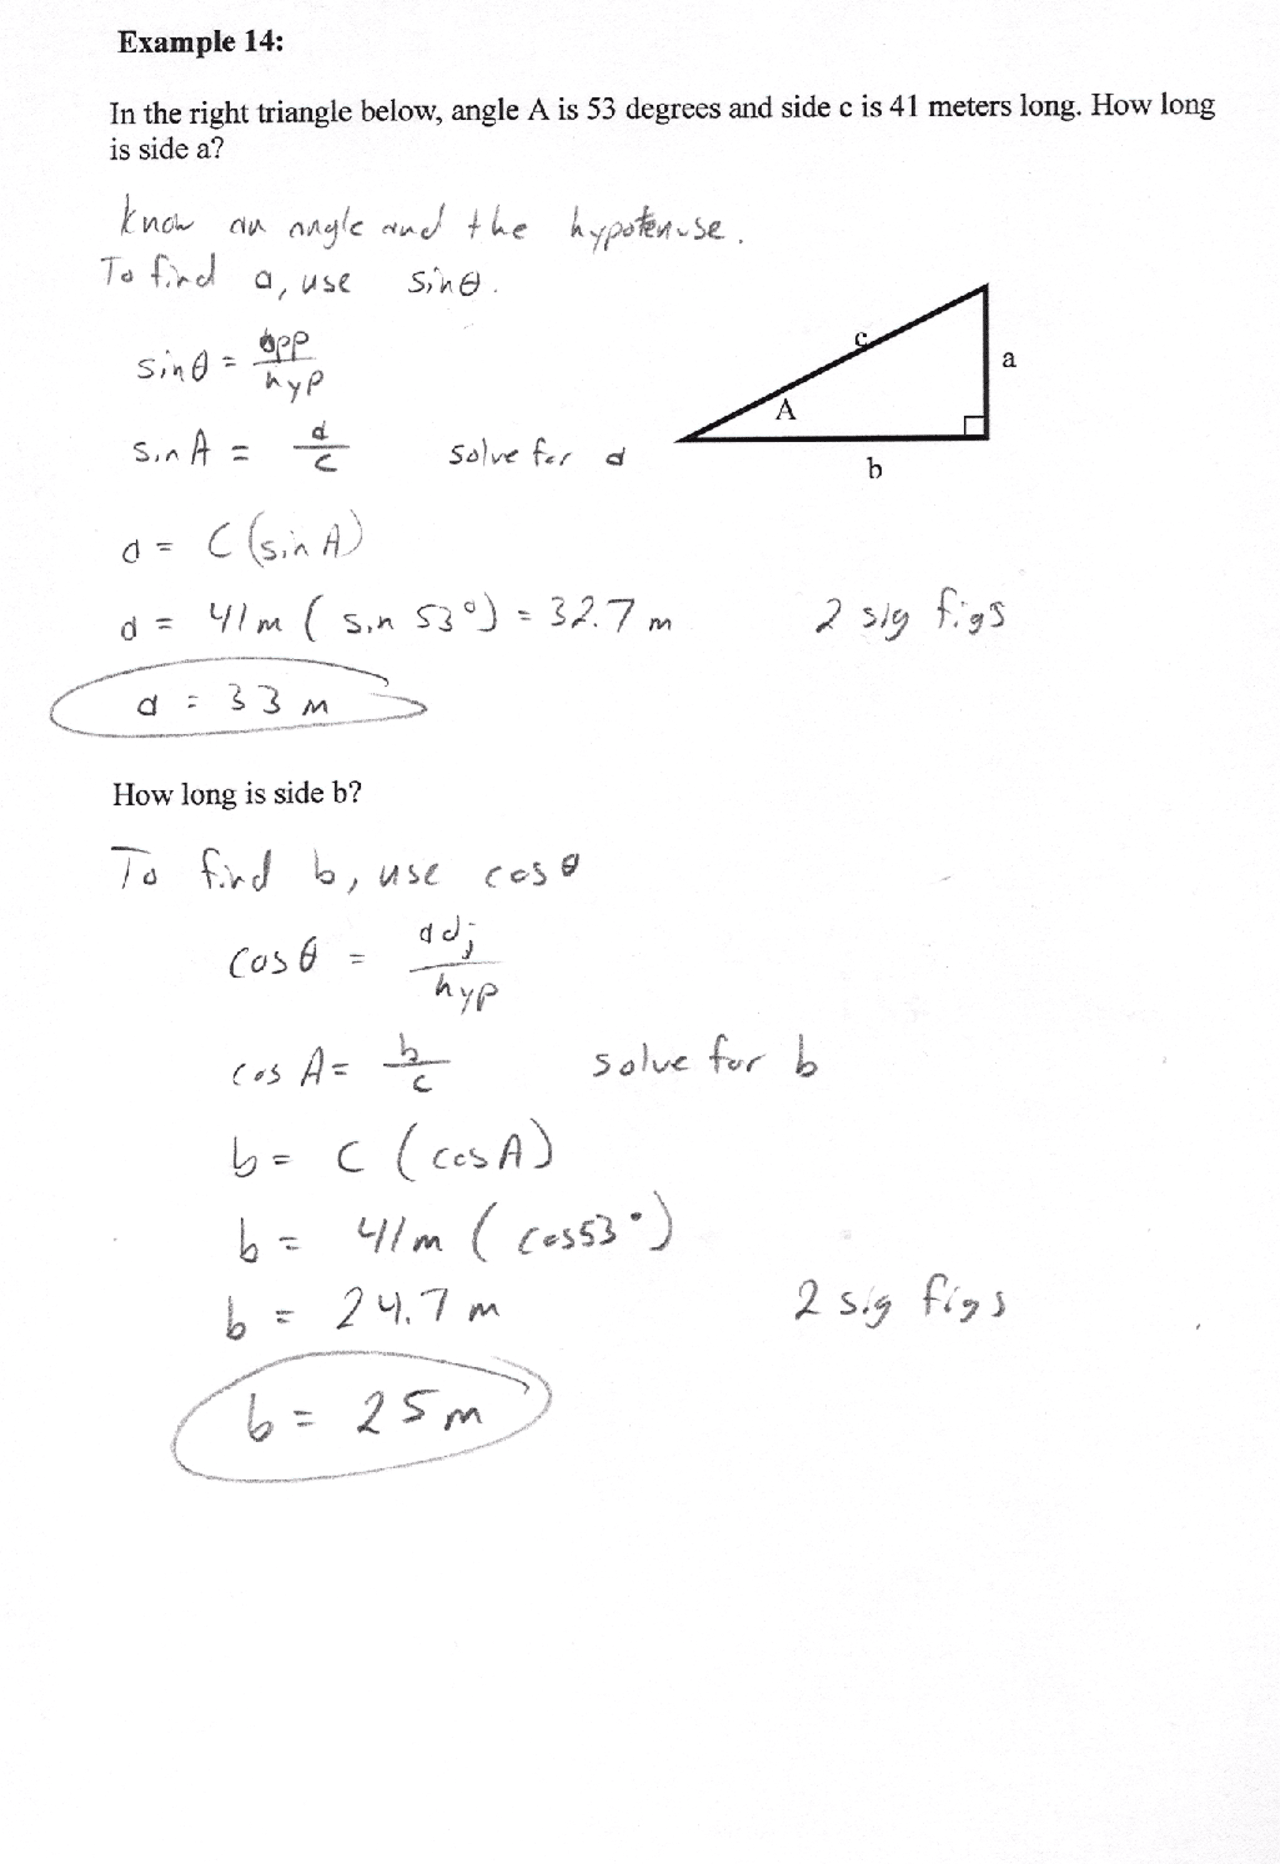 Example 14:
In the right triangle below, angle A is 53 degrees and side c is 41 meters long. How long
is side a?
Know an angle and the hypotenuse.
To find a, use sinθ.
sinθ = opp
hyp
sin A = a
c
solve for a
c
A
a
b
a = c (sin A)
a = 41 m ( sin 53°) = 32.7 m
2 sig figs
a = 33 m
How long is side b?
To find b, use cosθ
cosθ = adj
hyp
cos A = b
c
solve for b
b = c (cos A)
b = 41 m ( cos53°)
b = 24.7 m
2 sig figs
b = 25 m